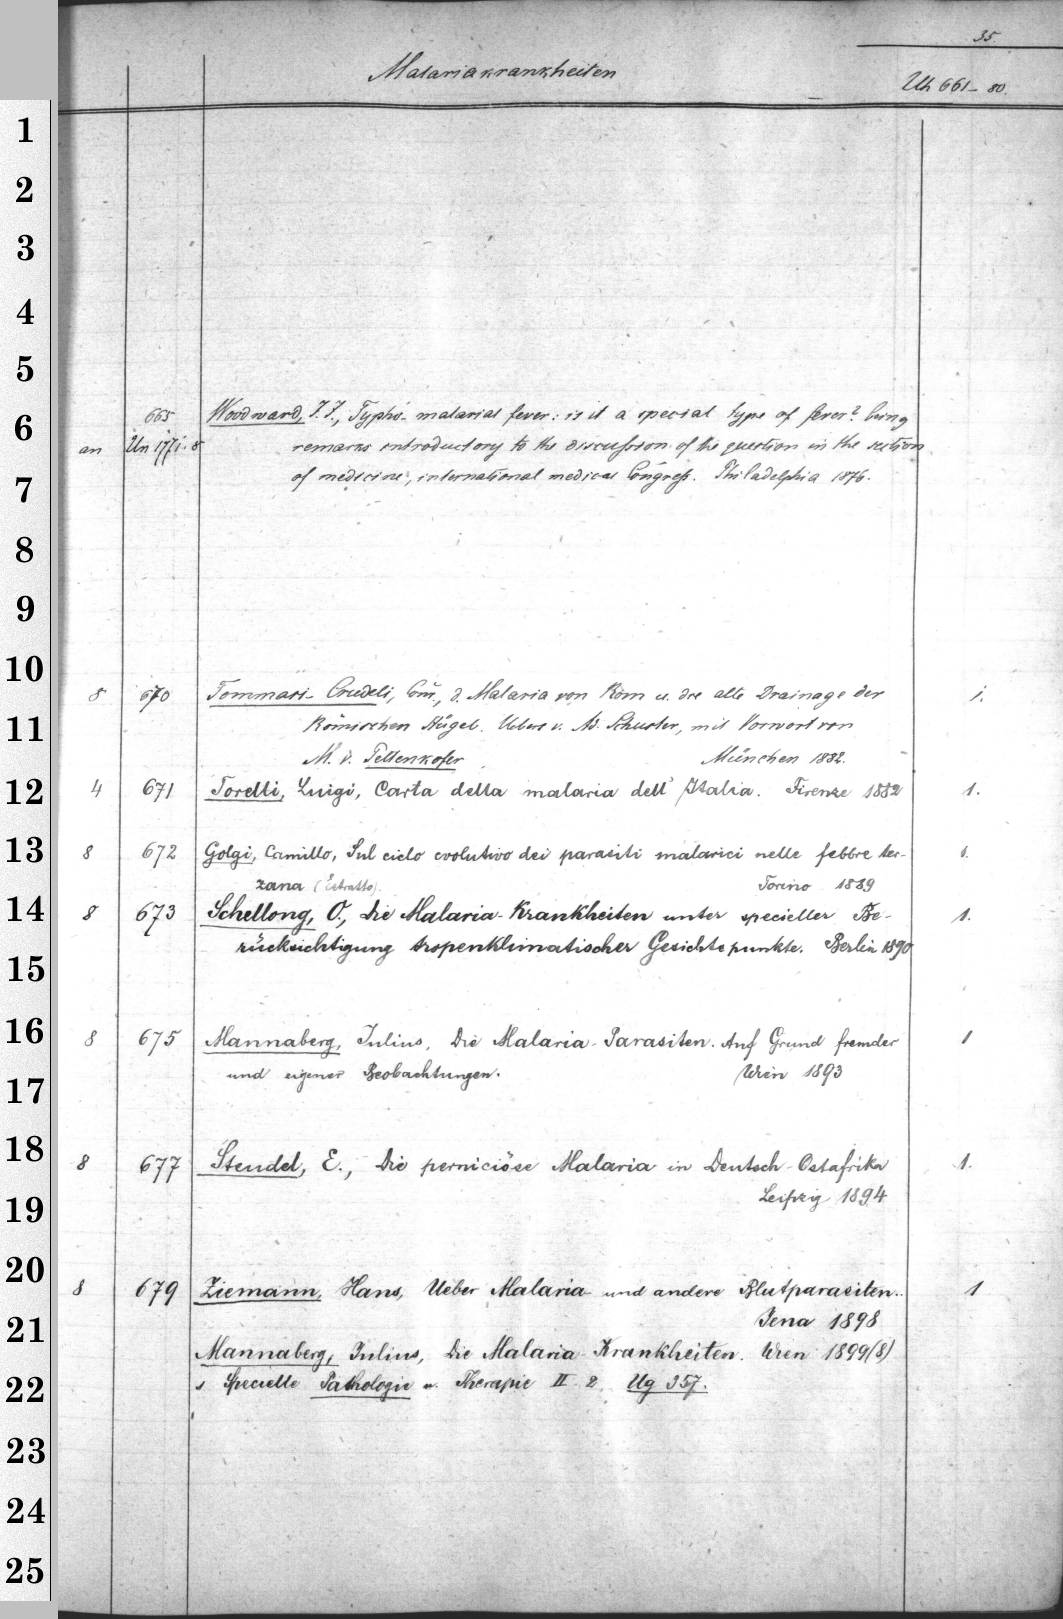 35.
Malariakrankheiten
Uh 661-80.
1
2
3
4
5
6
665 Woodward, J. J., Typho-malarial fever: is it a special type of fever? being
an Un 1771.8 remarks introductory to the discussion of the question in the section
7
of medicine, international medical Congress. Philadelphia 1876.
8
9
10
8 670 Tommasi-Crudeli, Corr., d. Malaria von Rom u. die alte Drainage der 1.
11
Römischen Hügel. Uebers v. Ad. Schuster, mit Vorwort von
M. v. Pettenkofer München 1882.
12
4 671 Torelli, Luigi, Carta della malaria dell' Italia. Firenze 1882 1.
13
8 672 Golgi, Camillo, Sul ciclo evolutivo dei parasiti malarici nelle febbre ter- 1.
zana (Estratto). Torino 1889
14
8 673 Schellong, O., Die Malaria-Krankheiten unter specieller Be- 1.
15
rücksichtigung tropenklimatischer Gesichtspunkte. Berlin 1890
16
8 675 Mannaberg, Julius, Die Malaria-Parasiten. Auf Grund fremder 1
17
und eigener Beobachtungen. Wien 1893
18
8 677 Steudel, E., Die perniciöse Malaria in Deutsch-Ostafrika 1.
19
Leipzig 1894
20
8 679 Ziemann, Hans, Ueber Malaria und andere Blutparasiten.. 1
21
Jena 1898
Mannaberg, Julius, Die Malaria-Krankheiten. Wien 1899(8)
22
s Specielle Pathologie u. Therapie II 2. Ug 357.
23
24
25